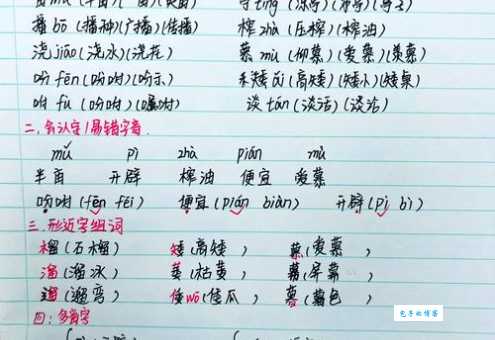 播 bō (播种)(广播)(传播) 榨 zhà (压榨)(榨油)
浇 jiāo (浇水)(浇花) 慕 mù (仰慕)(爱慕)(羡慕)
吩 fēn (吩咐)(吩示) 矮 ǎi (高矮)(矮小)(矮桌)
咐 fù (吩咐)(嘱咐) 谈 tán (谈话)(谈论)
二、会认字/易错字音.
mǔ pì zhà pián mù
半亩 开辟 榨油 便宜 爱慕
吩咐(fēn fēi) 便宜(pián biàn) 开辟(pì bì)
三、形近字组词
榴(石榴) 矮(高矮) 慕(爱慕)
溜(溜冰) 萎(枯萎) 幕(屏幕)
遛(遛弯) 倭wō(倭瓜) 暮(暮色)
四: 多音字
包哥the博客